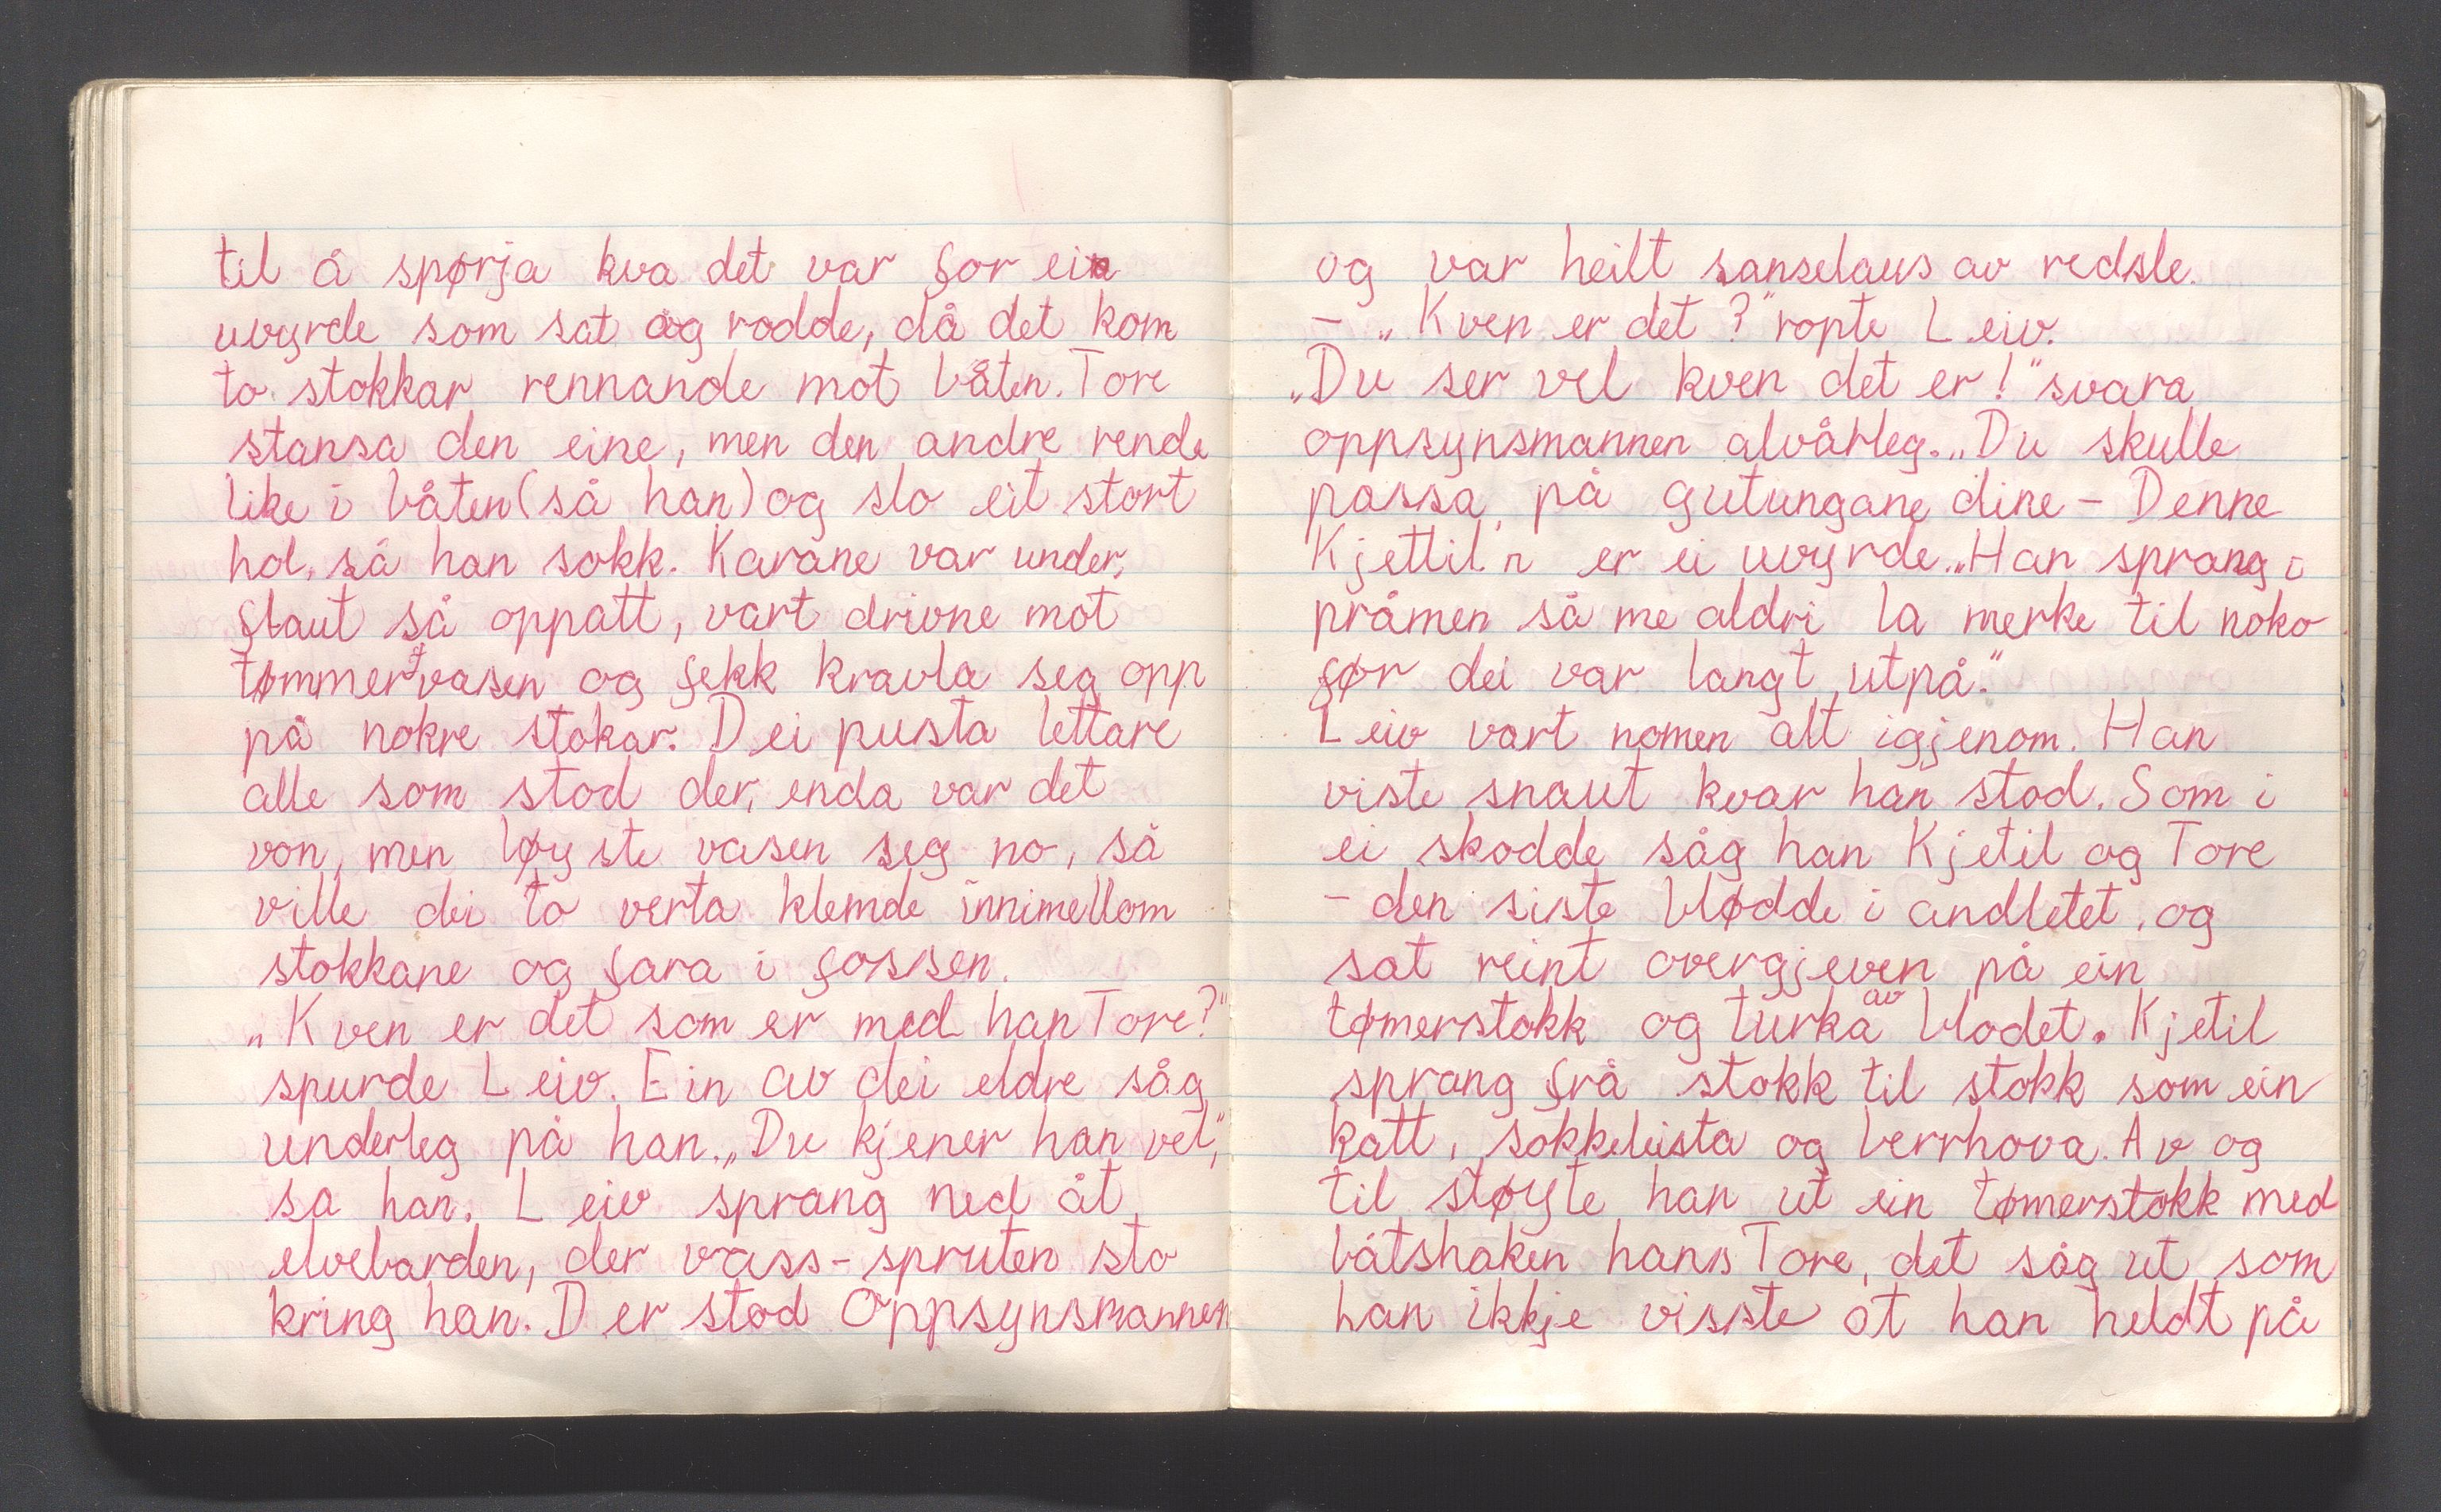 til å spørja kva det var for ein
uvyrde som sat og rodde, då det kom
to stokkar rennande mot båten. Tore
stansa den eine, men den andre rende
like i båten (så han) og slo eit stort
hol, så han sokk. Karane var under,
flaut så oppatt, vart drivne mot
tømmervasen og fekk kravla seg opp
på nokre stokar. Dei pusta lettare
alle som stod der, enda var det
von, men løyste vasen seg no, så
ville dei to verta klemde innimellom
stokkane og fara i fossen.
„Kven er det som er med han Tore?"
spurde Leiv. Ein av dei eldre såg
underleg på han. „Du kjener han vel,"
sa han. Leiv sprang ned åt
elvebarden, der vass-spruten sto
kring han. Der stod Oppsynsmannen
og var heilt sanselaus av redsle.
– „Kven er det?" ropte Leiv.
„Du ser vel kven det er!" svara
oppsynsmannen alvårleg. „Du skulle
passa på gutungane dine – Denne
Kjettil'n er ei uvyrde. „Han sprang i
pråmen så me aldri la merke til noko
før dei var langt utpå."
Leiv vart nomen alt igjenom. Han
viste snaut kvar han stod. Som i
ei skodde såg han Kjetil og Tore
– den siste blødde i andletet, og
sat reint overgjeven på ein
tømerstokk og turka av blodet. Kjetil
sprang frå stokk til stokk som ein
katt, sokkeleista og berrhova. Av og
til støyte han ut ein tømerstokk med
båtshaken hans Tore, det såg ut som
han ikkje visste at han heldt på